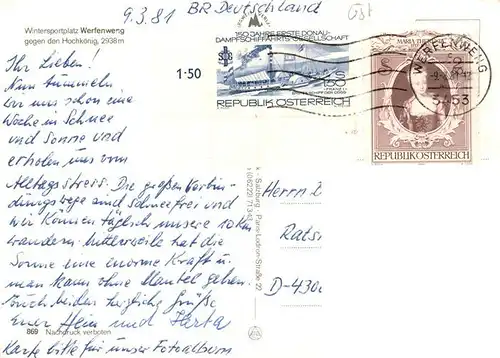 9.3.81 BR Deutschland
Öst
Wintersportplatz Werfenweng
gegen den Hochkönig, 2938m
Ihr Lieben!
Nun tummeln
wir uns schon eine
Woche in Schnee
und Sonne und
erholen uns vom
Alltagsstress. Die großen Verbin-
dungswege sind schneefrei und
wir können täglich unsere 10 Km
wandern. Mittlerweile hat die
Sonne eine enorme Kraft u.
man kann ohne Mantel gehen.
Euch beiden herzliche Grüße
Euer Hein und Herta
869 Nachdruck verboten
Karte bitte für unser Fotoalbum
150 JAHRE ERSTE DONAU-
DAMPFSCHIFFAHRTS-GESELLSCHAFT
1·50
REPUBLIK ÖSTERREICH
WERFENWENG
5453
REPUBLIK ÖSTERREICH
k · Salzburg · Paris-Lodron-Straße 22
Herrn
Rats
D-430